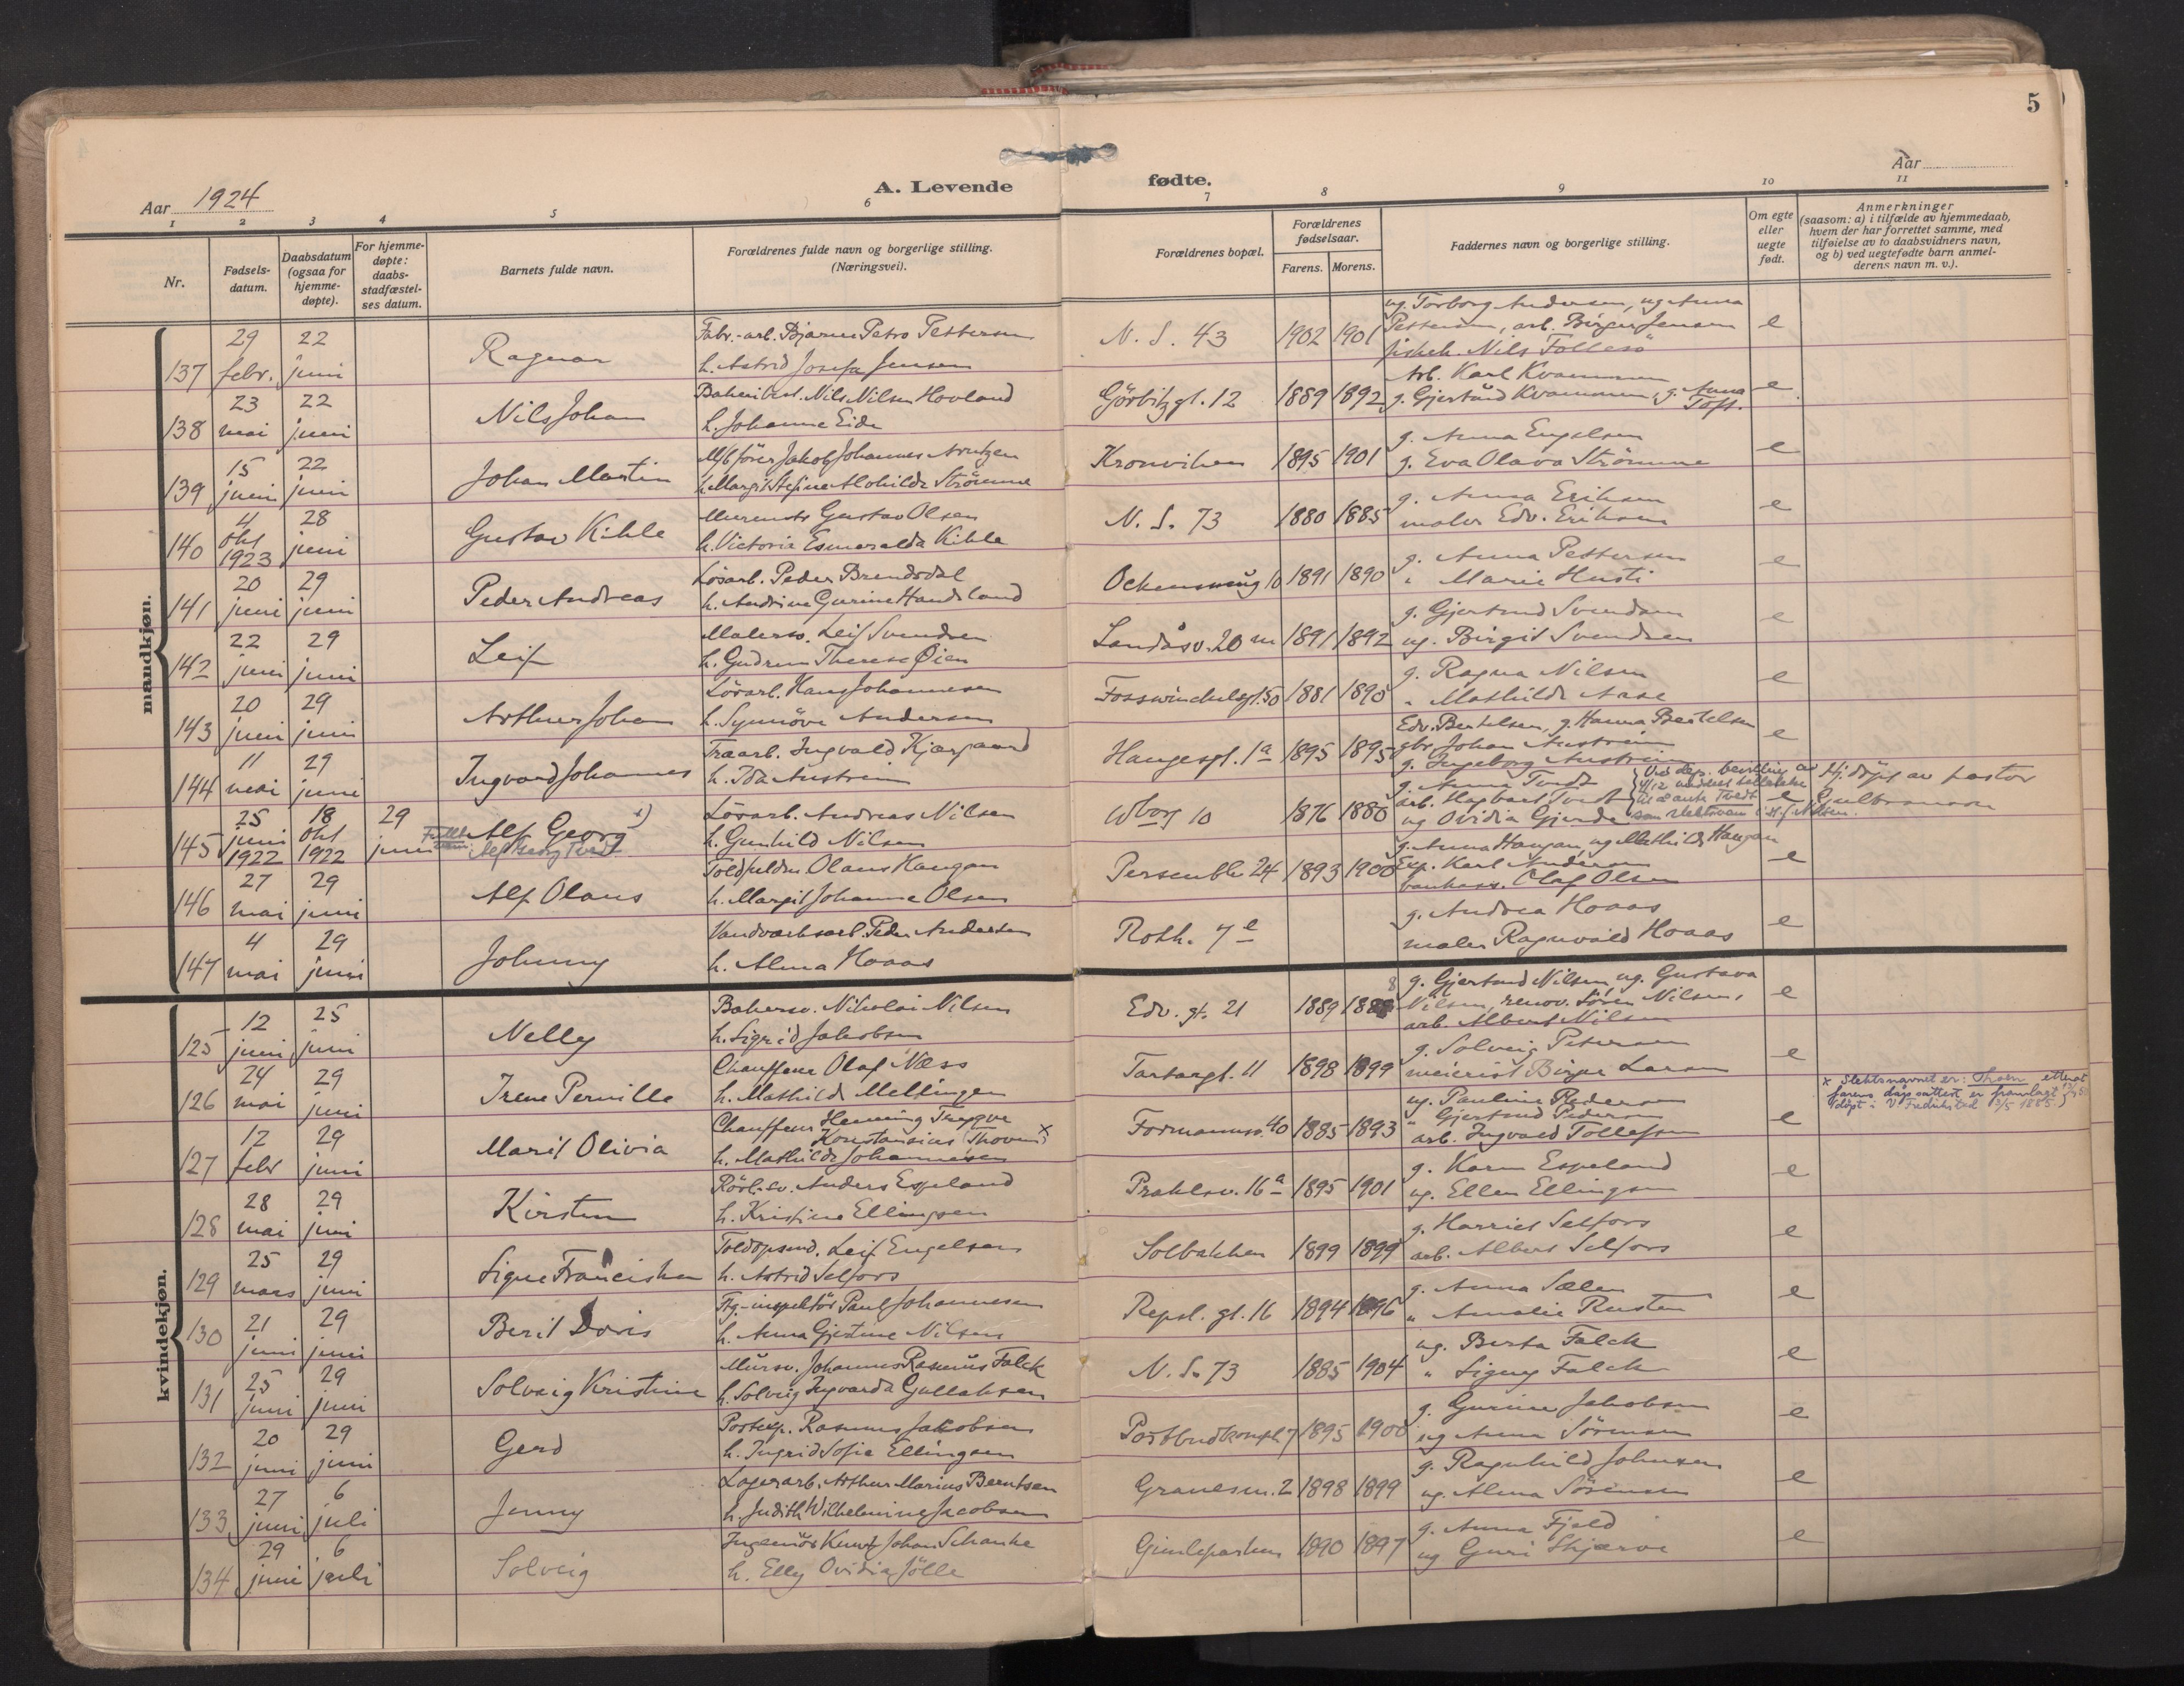 5
Aar 1924
A. Levende fødte.
Aar
1 2 3 4 5 6 7 8 9 10 11
Nr.
Fødsels-
datum.
Daabsdatum
(ogsaa for
hjemme-
døpte).
For hjemme-
døpte:
daabs-
stadfæstel-
ses datum.
Barnets fulde navn.
Forældrenes fulde navn og borgerlige stilling.
(Næringsvei).
Forældrenes bopæl.
Forældrenes
fødselsaar.
Farens. Morens.
Faddernes navn og borgerlige stilling.
Om egte
eller
uegte
født.
Anmerkninger
(saasom: a) i tilfælde av hjemmedaab,
hvem der har forrettet samme, med
tilføielse av to daabsvidners navn,
og b) ved uegtefødte barn anmel-
derens navn m. v.).
mandkjøn.
137 29 febr. 22 juni Ragnar
Fabr.-arb. Bjarne Petro Pettersen
h. Astrid Josefa Jensen
N. S. 43 1902 1901
ug. Torborg Andersen, ug Anna
Pettersen, arb. Birger Jensen
fiskeh. Nils Follesö
e
138 23 mai 22 juni Nils Johan
Nils Nilsen Hovland
h. Johanne Eide
Görbitzgt. 12 1889 1892
Arb. Karl Kvammen
g. Gjertrud Kvammen, g. Anna
Toft.
e
139 15 juni 22 juni Johan Martin
M/b förer Jakob Johannes Arntzen
h. Margit Mathilde Strömme
Kronviken 1895 1901
g. Anna Engelsen
g. Eva Olava Strömme
e
140 4 okt 1923 28 juni Gustav Kihle
Murmstr Gustav Olsen
h. Victoria Esmeralda Kihle
N. S. 73 1880 1885
g. Anna Eriksen
maler Edv. Eriksen
e
141 20 juni 29 juni Peder Andreas
Lösarb. Peder Brendsdal
h. Andrine Gurine Handeland
10 1891 1890
g. Anna Pettersen
" Marie Husti
e
142 22 juni 29 juni Leif
Malersv. Leif Svendsen
h. Gudrun Therese Øien
Landåsv. 20 m 1891 1892
g. Gjertrud Svendsen
ug. Birgit Svendsen
e
143 20 juni 29 juni Arthur Johan
Lösarb. Hans Johannesen
h. Synnöve Andersen
Fosswinckelsgt. 50 1881 1890
g. Ragna Nilsen
" Mathilde Aase
e
144 11 mai 29 juni Ingvard Johannes
Fraarb. Ingvald Kjærgaard
h. Ida Austrein
Haugesgt. 1a 1895 1895
Edv. Bertelsen, g. Hanna Bertelsen
gbr. Johan Austrein
g. Ingeborg Austrein
e
145 25 juni 1922 18 okt 1922 29 juni Alf Georg x)
Alf Georg Tvedt
Lösarb. Andreas Nilsen
h. Gunhild Nilsen
Wborg 10 1876 1880
g. Anna Tvedt
arb. Hagbart Tvedt
ug Ovidia Gjerde
e
Hj.döpt av pastor
146 27 mai 29 juni Alf Olaus
Olaus Haugan
h. Margit Johanne Olsen
Persenbk. 24 1893 1900
g. Anna Haugan, ug Mathilde Haugan
Exp. Karl Andersen
bankass. Olaf Olsen
e
147 4 mai 29 juni Johnny
Vandverksarb. Peder Andersen
h. Alma Hoaas
Roth. 7e
g. Andrea Hoaas
maler Ragnvald Hoaas
e
kvindekjøn.
125 12 juni 25 juni Nelly
Bakersv. Nikolai Nilsen
h. Sigrid Jakobsen
Edv. gt. 21 1889
g. Gjertrud Nilsen, ug. Gustava
Nilsen, renov. Sören Nilsen,
arb. Albert Nilsen
e
126 24 mai 29 juni Irene Pernille
Chauffeur Olaf Næss
h. Mathilde Mellingen
Tartargt. 11 1898 1899
g. Solveig Petersen
meierist Birger Larsen
e
127 12 febr 29 juni Marit Olivia
Chauffeur Henning Trygve
Konstansius Thoven x
h. Mathilde Johannesen
Formannsv. 40 1885 1893
ug. Pauline Pedersen
" Gjertrud Pedersen
arb. Ingvald Tollefsen
e
x Slektsnavnet er: Thoen
farens dåpsattest er framlagt
(döpt i V. Fredrikstad 3/5 1885.)
128 28 mai 29 juni Kirsten
Rörl.sv. Anders Espeland
h. Kristine Ellingsen
Prahlsv. 16a 1895 1901
g. Karen Espeland
ug. Ellen Ellingsen
e
129 25 mars 29 juni Signe Franciska
Toldopsynd. Leif Engelsen
h. Astrid Selfors
Solbakken 1899 1899
g. Harriet Selfors
arb. Albert Selfors
e
130 21 juni 29 juni Berit Doris
Paul Johannesen
h. Anna Gjertine Nilsen
Repsl. gt. 16 1894 1896
g. Anna Sælen
" Amalie Rusten
e
131 25 juni 29 juni Solveig Kristine
Mursv. Johannes Rasmus Falck
h. Solveig Ingvarda Gullaksen
N. S. 73 1885 1904
ug. Berta Falck
" Signy Falck
e
132 20 juni 29 juni Gerd
Postexp. Rasmus Jakobsen
h. Ingrid Sofie Ellingsen
Postbudkompl. 7 1895 1900
g. Gurine Jakobsen
ug Anna Sörensen
e
133 27 juni 6 juli Jenny
Lagerarb. Arthur Marius Berntsen
h. Judith Wilhelmine Jacobsen
2 1898 1899
g. Ragnhild Johnsen
ug. Alma Sörensen
e
134 29 juni 6 juli Solveig
Ingeniör Knut Johan Schanke
h. Elly Ovidia Jölle
Gimleparken 1890 1897
g. Anna Fjeld
ug Guri Skjærve
e